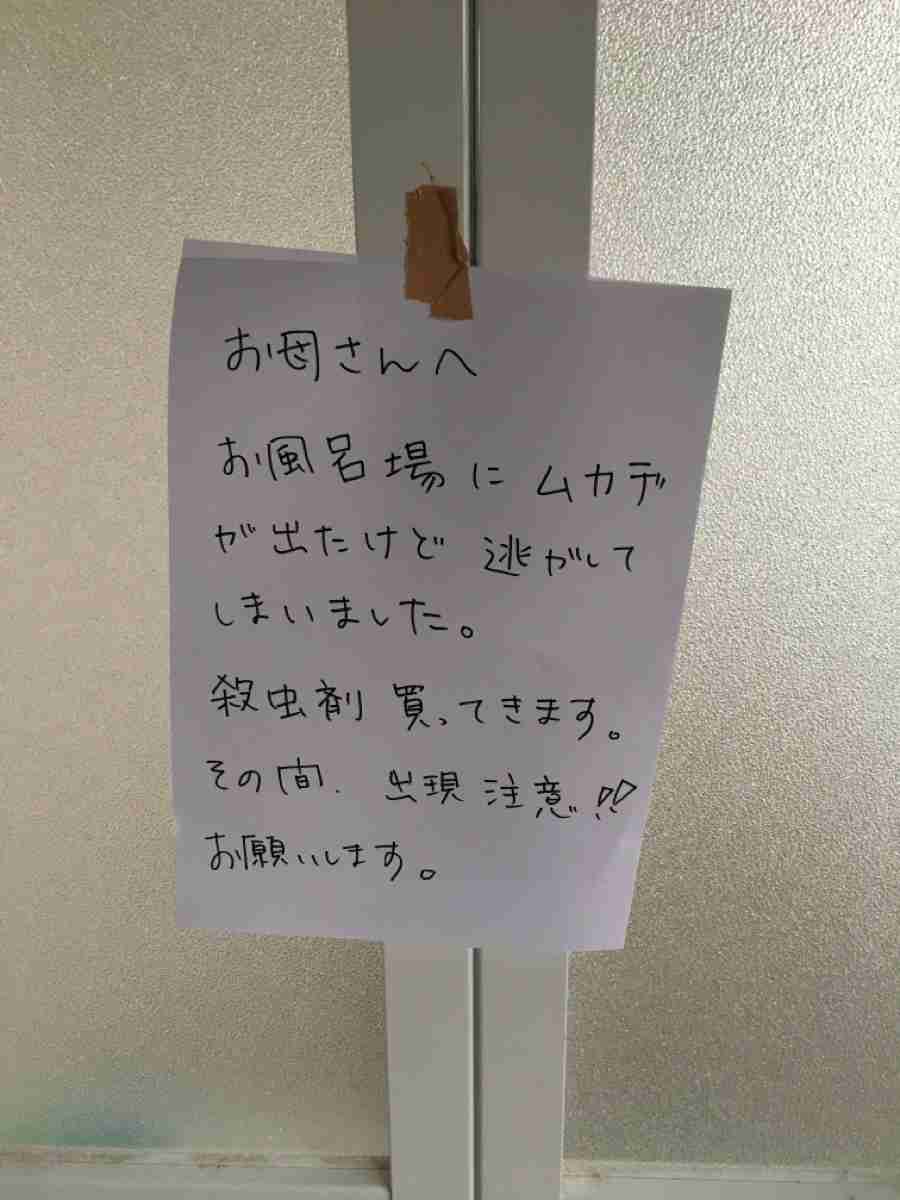 お母さんへ
お風呂場に ムカデ
が出たけど 逃がして
しまいました。
殺虫剤 買ってきます。
その間、出現 注意!!
お願いします。